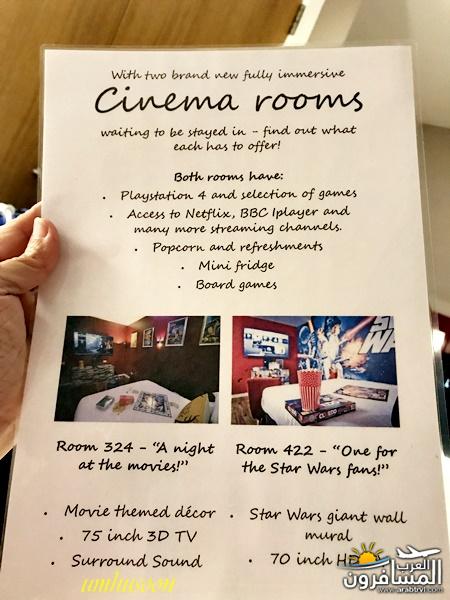 With two brand new fully immersive
Cinema rooms
waiting to be stayed in - find out what
each has to offer!
Both rooms have:
• Playstation 4 and selection of games
• Access to Netflix, BBC Iplayer and
many more streaming channels.
• Popcorn and refreshments
• Mini fridge
• Board games
Room 324 - "A night
at the movies!"
Room 422 - "One for
the Star Wars fans!"
• Movie themed décor
• 75 inch 3D TV
• Surround Sound
• Star Wars giant wall
mural
• 70 inch HD
العرب
المسافرون
www.arabtrvl.com